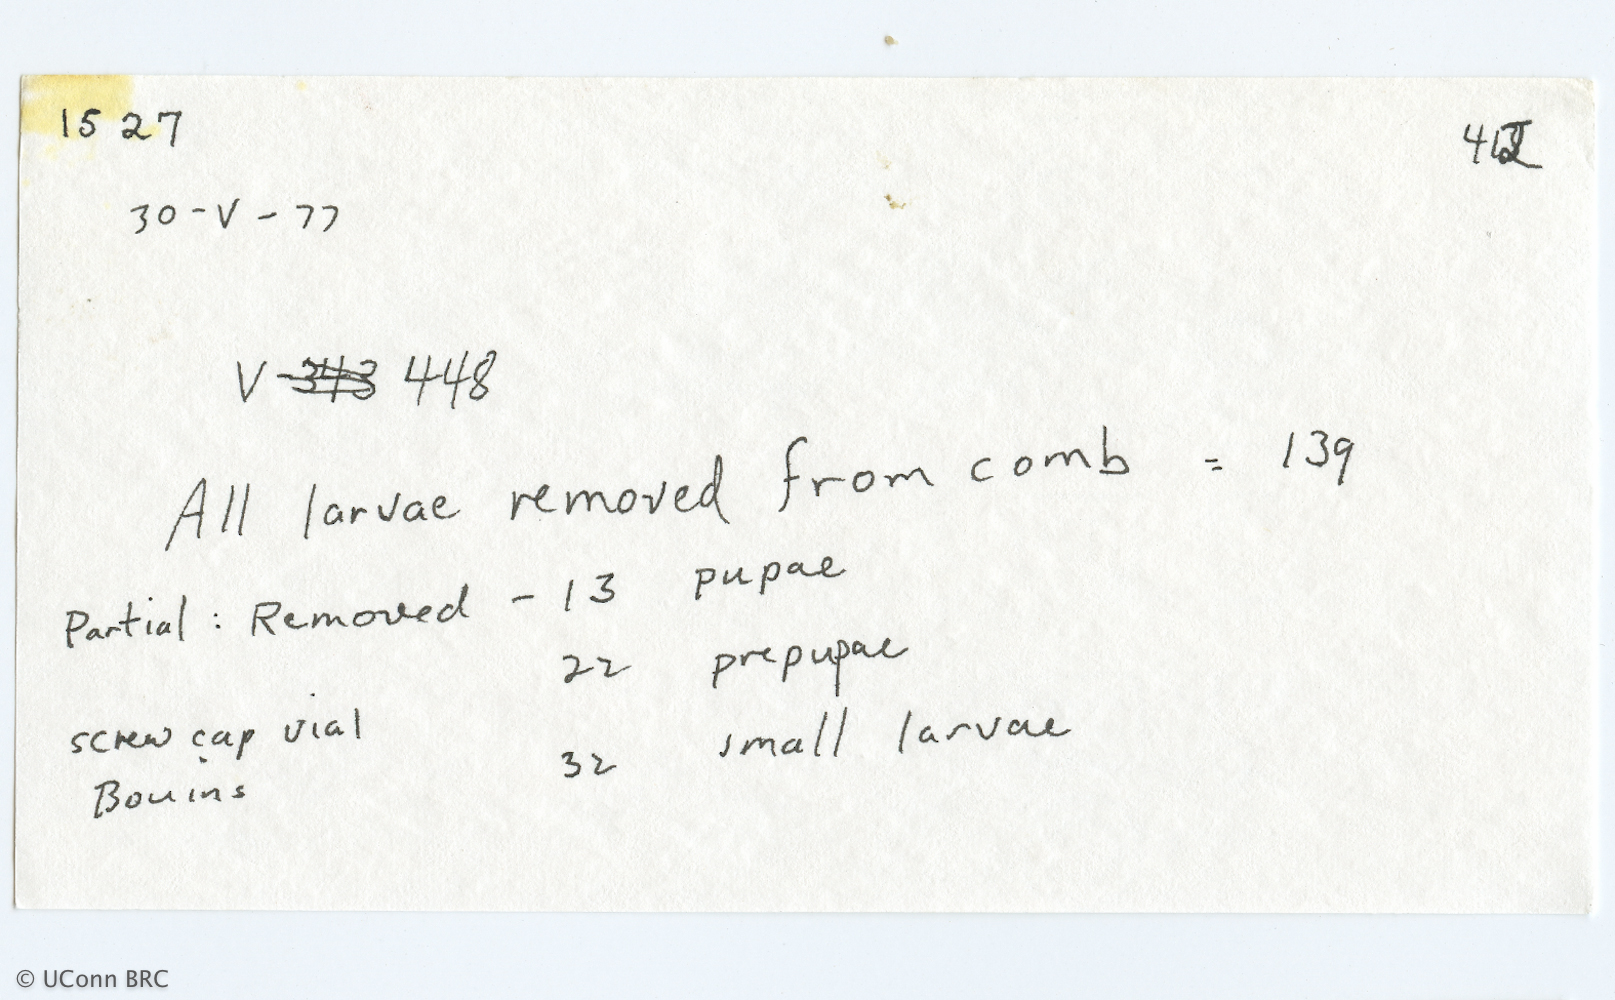 15 27
30-V-77
V-343 448
All larvae removed from comb = 139
Partial: Removed - 13 pupae
22 prepupae
screw cap vial
32 small larvae
Bouins
© UConn BRC